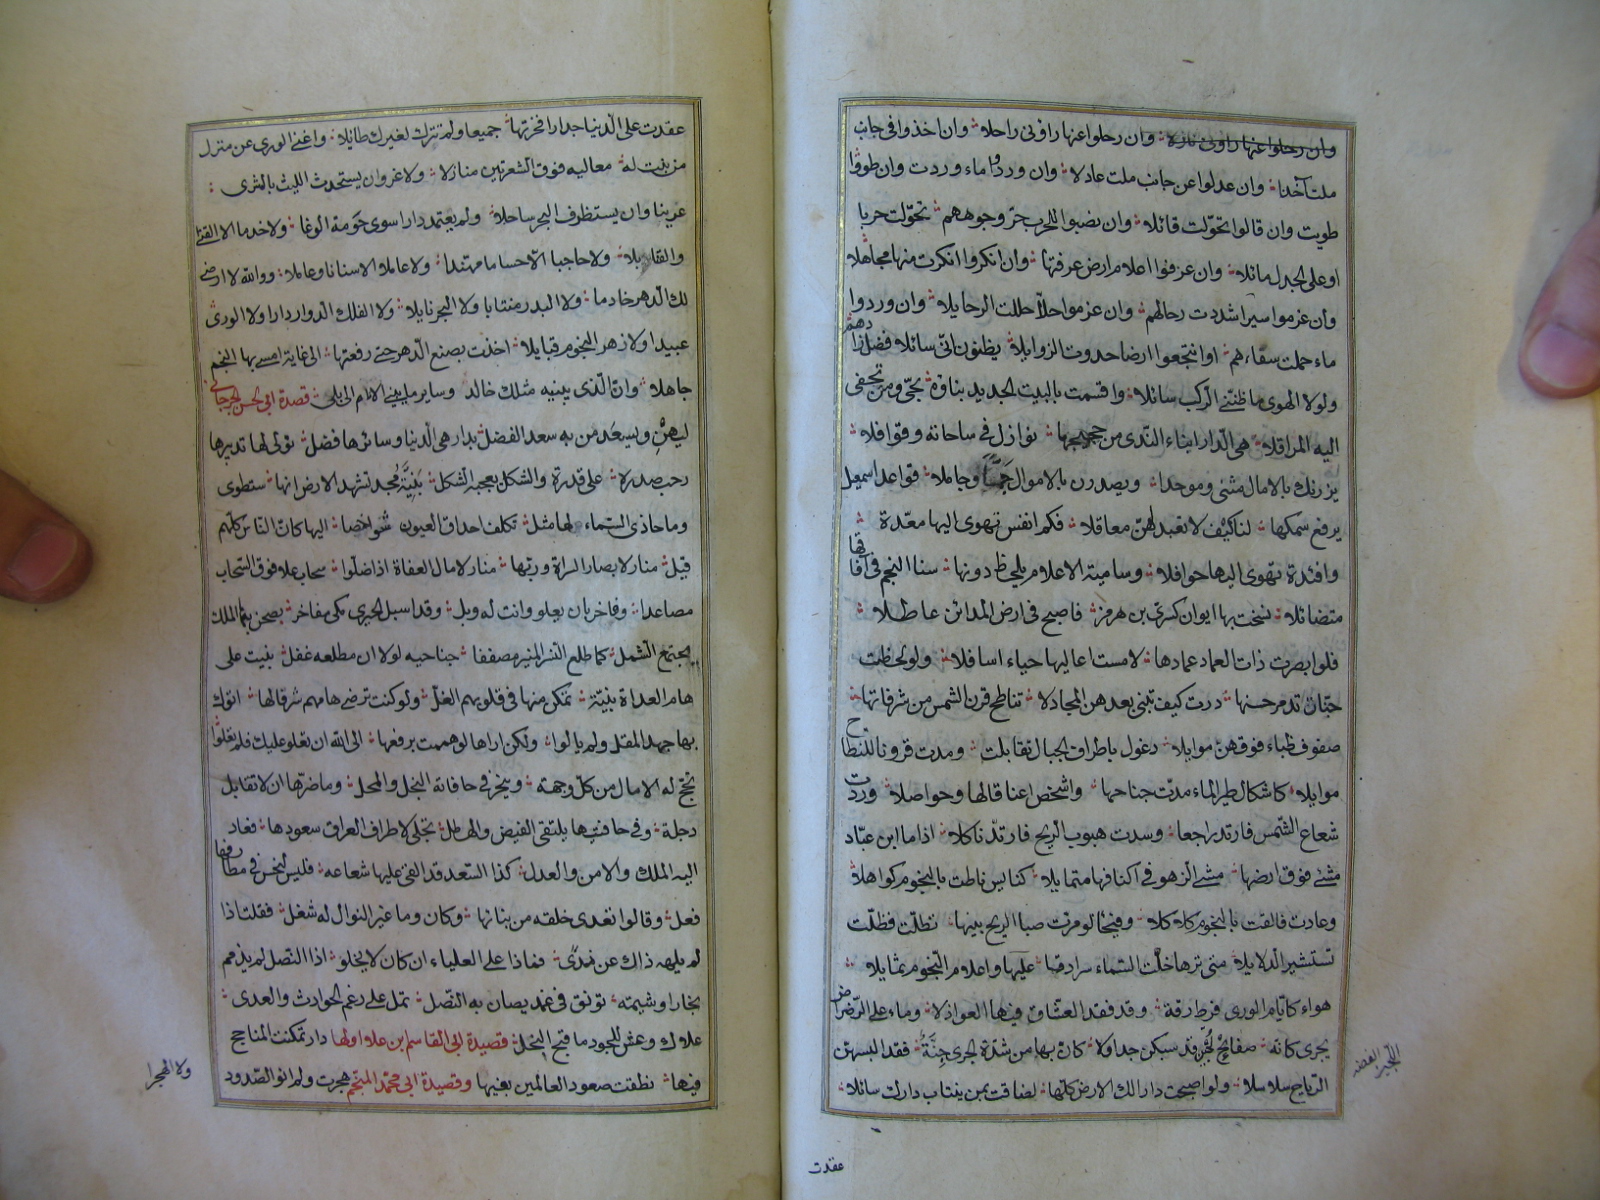 وان رحلوا عنها راوني نازلا وان رحلوا عنها راوني راحلا وان اخذوا في جانب
ملت آخذا وان عدلوا عن جانب ملت عادلا وان وردوا ماء وردت وان طووا
طويت وان قالوا تحولت قائلا وان نصبوا للحرب حر وجوههم تحولت حربا
او على الجدل مائلا وان عرفوا اعلام ارض عرفتها وان انكروا انكرت منها مجاهلا
وان عزموا سيرا شددت رحالهم وان عزموا حلا حللت الرحايلا وان وردوا
ماء حملت سقاءهم او انتجعوا ارضا حدوت الزوايلا يظنون اني سائلا فضل زادهم
ولولا الهوى ما ظنني الركب سائلا واقسمت بالبيت الجديد بناؤه بحي ومن تحفى
اليه المراقلا هي الدار ابناء الندى من حجيجها نوازل في ساحاته وقوافلا
يزرنك بالامال مثنى وموحدا ويصدرن بالاموال جما وجاملا قواعد اسمعيل
يرفع سمكها لنا كيف لا نعبدهن معاقلا فكم انفس تهوى اليها معدة
وافئدة تهوى اليها حوافلا وسامية الاعلام يلحظ دونها سنا النجم في آفاقها
متضائلا نسخت بها ايوان كسرى بن هرمز فاصبح في ارض المدائن عاطلا
فلو ابصرت ذات العماد عمادها لامست اعاليها حياء اسافلا ولو لحظت
جنات تدمر حسنها درت كيف تبنى بعدهن المجادلا تناطح قرن الشمس من شرفاتها
صفوف ظباء فوقهن موايلا وعول باطراف الجبال تقابلت ومدت قرونا للنطاح
موايلا كاشكال طير الماء مدت جناحها واشخص اعناقا لها وحواصلا وردت
شعاع الشمس فارتد راجعا وسدت هبوب الريح فارتد ناكلا اذا ما ابن عباد
مشى فوق ارضها مشى الزهو في اكنافها متمايلا كنايس ناطت بالنجوم كواهلا
وعادت فالقت بالنجوم كلاكلا وفيحا لو مرت صبا الريح بينها لظلت فظلت
تستشير الدلايلا متى ترها خلت السماء سرادقا عليها واعلام النجوم تماثلا
هواء كايام الورى فرط رقة وقد فقد العشاق فيها العواذلا وماء على الرضراض
يجرى كانه صفائح تبر قد سبكن جداولا كان بها من شدة الجرى جنة فقد البستهن
الرياح سلاسلا ولو اصبحت دارا لك الارض كلها لضاقت بمن ينتاب دارك سائلا
عقدت
عقدت على الدنيا جدارا فخرتها جميعا ولم تترك لغيرك طائلا واغنى الورى عن منزل
من بنت له معاليه فوق الشعرتين منازلا ولا غرو ان يستحدث الليث بالثرى
عرينا وان يستظرف البحر ساحلا ولم يعتمد دارا سوى حومة الوغا ولا خدما الا القنا
والقنابلا ولا حاجبا الا حساما مهندا ولا عاملا الا سنانا وعاملا ووالله لا ارضى
لك الدهر خادما ولا البدر منتابا ولا البحر نايلا ولا الفلك الدوار دارا ولا الورى
عبيدا ولا زهر النجوم قبايلا اخذت بضبع الدهر حتى رفعتها الى غاية امسى بها النجم
جاهلا وان الذي يبنيه مثلك خالد وساير ما يبنى الانام الى بلى قصدة ابى الحسن الجرجانى
ليهن ويسعد من به سعد الفضل بدار هي الدنيا وسائرها فضل تولى لها تدبيرها
رحب صدره على قدره والشكل يعجبه الشكل بنية مجد تشهد الارض انها ستطوى
وما حاذى السماء لها مثل تكلف احداق العيون شواخصا اليها كان الناس كلهم
قبل منار لابصار السراة وربها منار لامال العفاة اذا ضلوا سحاب علا فوق السحاب
مصاعدا وفاخر بان يعلو وانت له وبل وقد اسبل الخيرى كمى مفاخر بصحن بها الملك
يجتمع الشمل كما طلع النسر المنير مصفقا جناحيه لولا ان مطلعه غفل بنيت على
هام العداة بنية تمكن منها في قلوبهم الغل ولو كنت ترضى هامهم شرفا لها اتوك
بها جهد المقل ولم يالوا ولكن اراها لو هممت برفعها الى الله ان تعلو عليك فلم تعلوا
تحج له الامال من كل وجهة وينحر في حافاته البخل والمحل وما ضرها ان لا تقابل
دجلة وفي حافتيها يلتقى الفيض والهطل تجلى لاطراف العراق سعودها فعاد
اليه الملك والامن والعدل كذا السعد قد القى عليها شعاعه فليس لنحس في مطارفها
فعل وقالوا تعدى خلقه من بنائها وكان وما غير النوال له شغل فقلت اذا
لم يلهه ذاك عن ندى فماذا على العلياء ان كان لا يخلو اذا النصل لم يذمم
نجارا وشيمته تونق في غمد يصان به النصل تمل على رغم الحوادث والعدى
علاك وعش للجود ما قبح البخل قصيدة ابى القاسم بن علا اولها دار تمكنت المناجح
فيها نطقت سعود العالمين بفيها وقصيدة ابى محمد المنجم هجرت ولم انو الصدود
ولا الهجرا